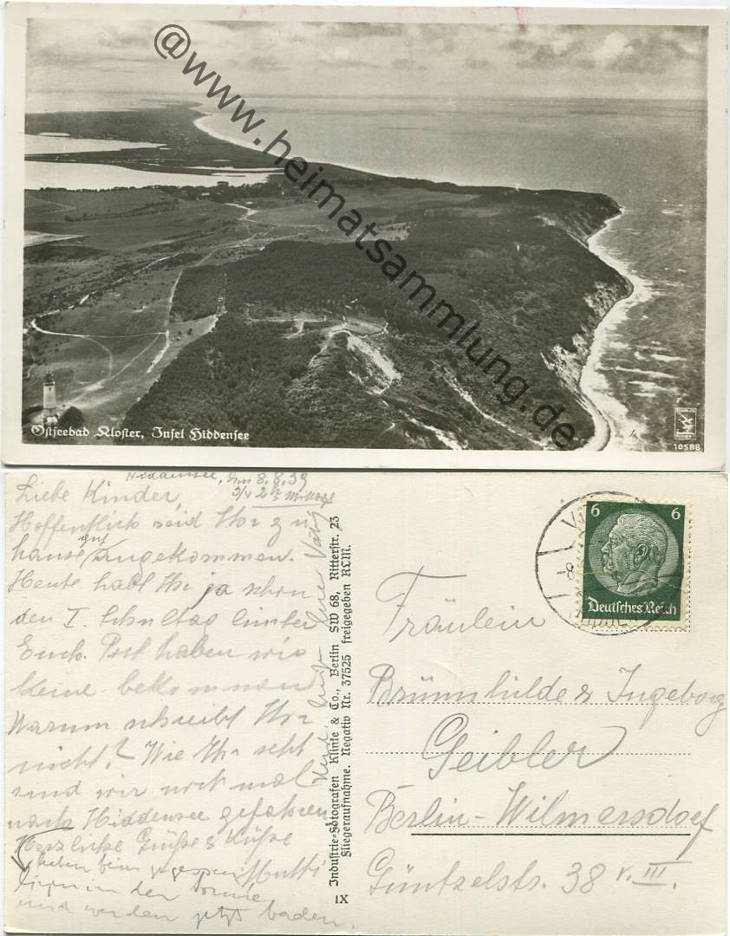 @www.heimatsammlung.de
Ostseebad Kloster, Insel Hiddensee
10588
Hiddensee, den 8.8.39
3/4 2 h Mittags
Liebe Kinder,
Hoffentlich seid Ihr zu
hause gut angekommen.
Heute habt Ihr ja schon
den I. Schultag hinter
Euch. Post haben wir
keine bekommen
Warum schreibt Ihr
nicht? Wie Ihr seht
sind wir noch mal
nach Hiddensee gefahren
Herzliche Grüße & Küße
Mutti
haben fein gegessen
liegen in der Sonne
und werden jetzt baden.
Vati
Industrie-Fotografen Klinke & Co., Berlin SW 68, Ritterstr. 23
Fliegeraufnahme. Negativ Nr. 37525 freigegeben RLM.
IX
6 6
Deutsches Reich
Fräulein
Brünnhilde & Ingeborg
Geibler
Berlin-Wilmersdorf
Güntzelstr. 38 v. III.